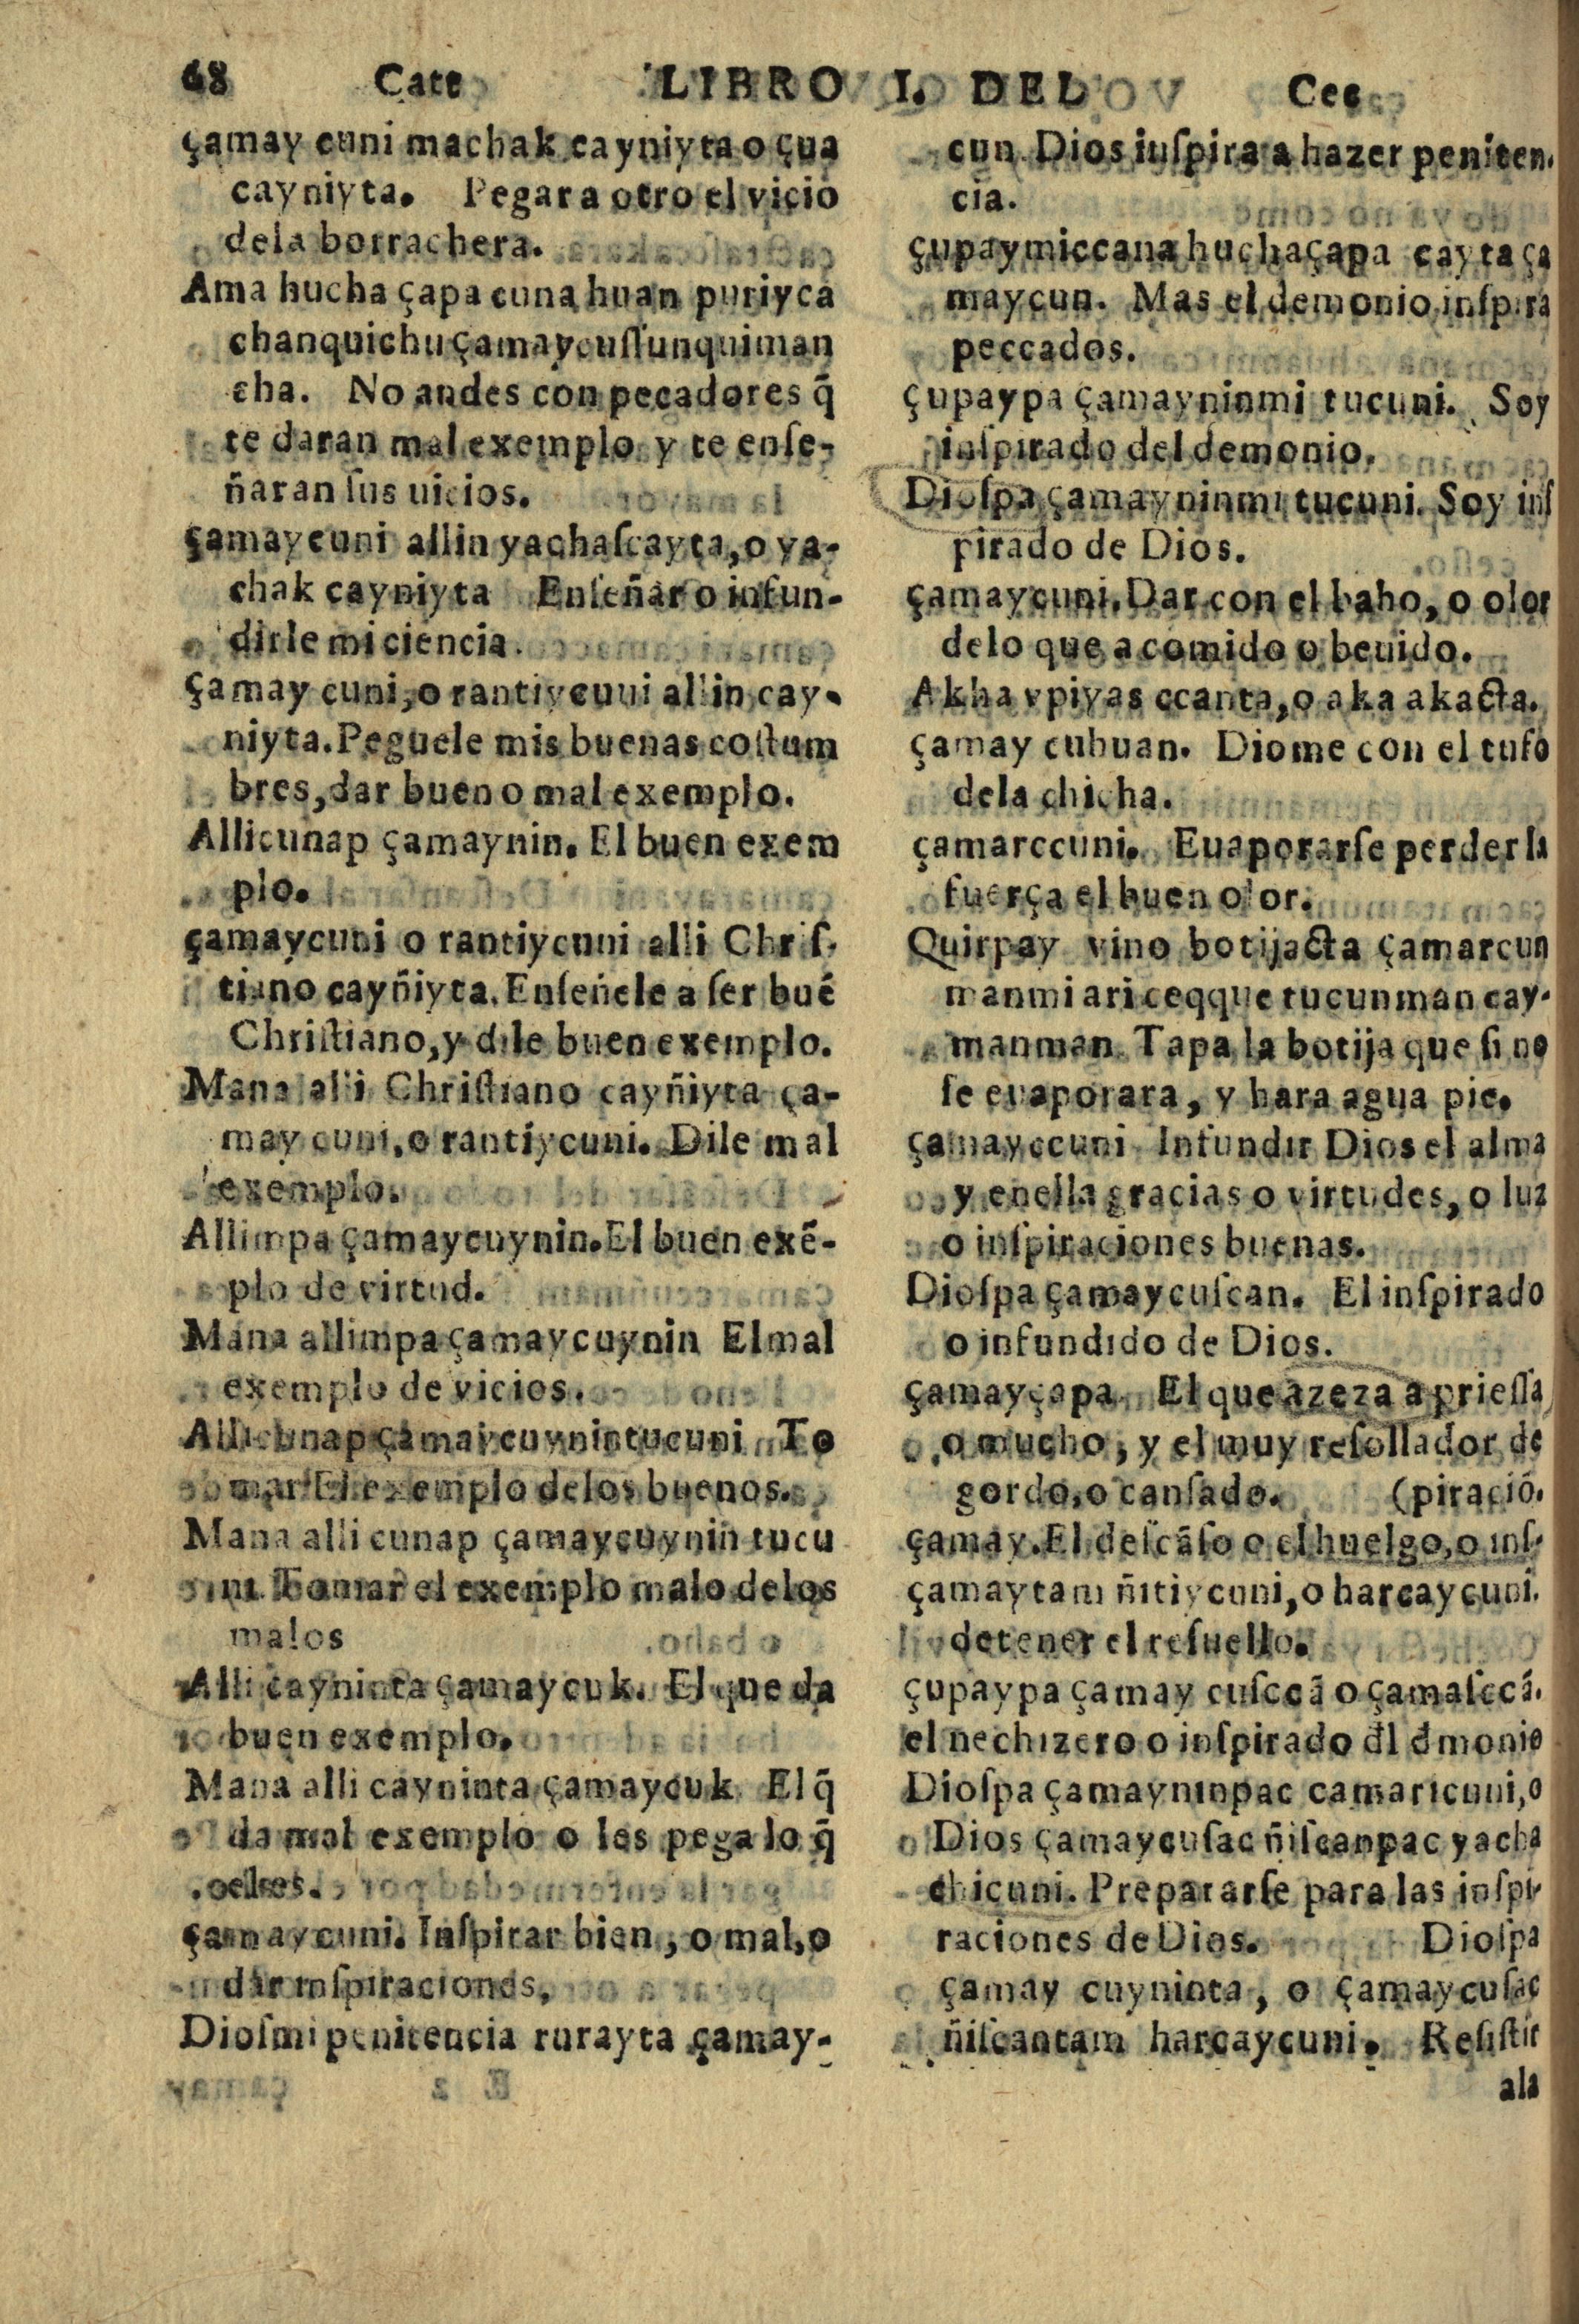 68 Cate LIBRO I. DEL Cee
çamay cuni machak cayniyta o çua
cayniyta. Pegar a otro el vicio
dela borrachera.
Ama hucha çapa cuna huan puriyca
chanquichu çamaycuſſunquiman
cha. No andes con pecadores q̃
te daran mal exemplo y te enſe-
ñaran ſus uicios.
çamaycuni allin yachaſcayta, o ya-
chak cayniyta Enſeñar o infun-
dirle mi ciencia.
çamay cuni, o rantiycuui allin cay-
niyta. Peguele mis buenas coſtum
bres, dar bueno mal exemplo.
Allicunap çamaynin. El buen exem
plo.
çamaycuni o rantiycuni alli Chriſ-
tiano cayñiyta. Enſeñele a ſer buẽ
Chriſtiano, y dile buen exemplo.
Mana alli Chriſtiano cayñiyta ça-
may cuni, o rantiycuni. Dile mal
exemplo.
Allimpa çamaycuynin. El buen exẽ-
plo de virtud.
Mana allimpa çamaycuynin El mal
exemplo de vicios.
Allicunap çamaicuynintucuni To
mar El exemplo delos buenos.
Mana alli cunap çamaycuynin tucu
ni. Tomar el exemplo malo delos
malos
Alli cayninta çamaycuk. El que da
buen exemplo.
Mana alli cayninta çamaycuk El q̃
da mal exemplo o les pega lo q̃
çamaycuni. Inſpirar bien, o mal, o
dar inſpiraciones.
Dioſmi penitencia rurayta çamay-
cun Dios iuſpira a hazer peniten.
cia.
çupaymiccana huchaçapa cayta ça
maycun. Mas el demonio inſpira
peccados.
çupaypa çamayninmi tucuni. Soy
inſpirado del demonio.
Dioſpa çamayninmi tucuni. Soy inſ
pirado de Dios.
çamaycuni. Dar con el baho, o olor
delo que a comido o beuido.
Akha vpiyas ccanta, o aka akacta.
çamay cuhuan. Diome con el tufo
dela chicha.
çamarccuni. Euaporarſe perder la
fuerça el buen olor.
Quirpay vino botijacta çamarcun
manmi ari ceqque tucunman cay-
manman. Tapa la botija que ſi no
ſe euaporara, y hara agua pie.
çamayccuni Infundir Dios el alma
y enella gracias o virtudes, o luz
o inſpiraciones buenas.
Dioſpa çamaycuſcan. El inſpirado
o infundido de Dios.
çamayçapa. El que azeza a prieſſa
o mucho, y el muy reſollador de
gordo, o canſado. (piraciõ.
çamay. El deſcãſo o el huelgo, o inſ-
çamaytam ñitiycuni, o harcaycuni.
detener el reſuello.
çupaypa çamay cuſccã o çamaſccã.
el hechizero o inſpirado đl đmonio
Dioſpa çamayninpac camaricuni, o
Dios çamaycuſac ñiſcanpac yacha
chicuni. Prepararſe para las inſpi-
raciones de Dios. Dioſpa
çamay cuyninta, o çamaycuſac
ñiſcantam harcaycuni. Reſiſtir
ala